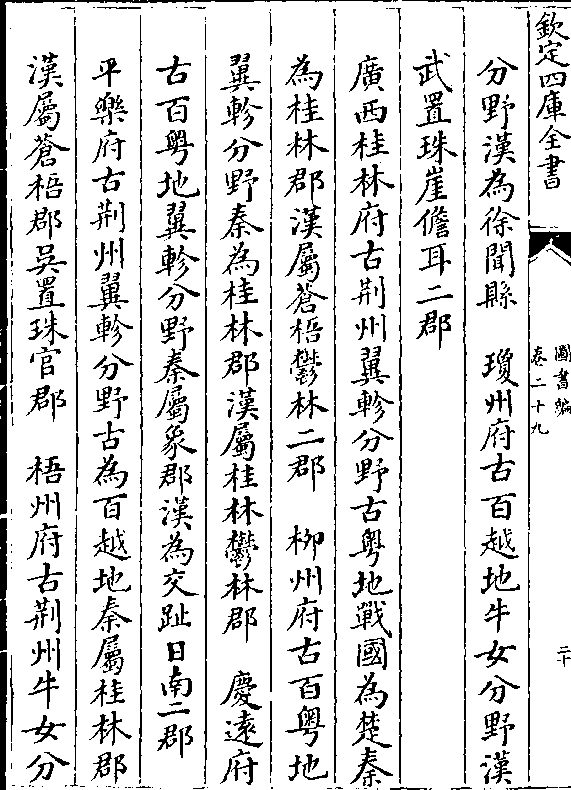 欽定四庫全書
圖書編
卷二十九
二十
分野漢為徐聞縣　瓊州府古百越地牛女分野漢
武置珠崖儋耳二郡
廣西桂林府古荆州翼軫分野古粤地戰國為楚秦
為桂林郡漢屬蒼梧鬱林二郡　柳州府古百粤地
翼軫分野秦為桂林郡漢屬桂林鬱林郡　慶遠府
古百粤地翼軫分野秦屬象郡漢為交趾日南二郡
平樂府古荆州翼軫分野古為百越地秦屬桂林郡
漢屬蒼梧郡吳置珠官郡　梧州府古荆州牛女分